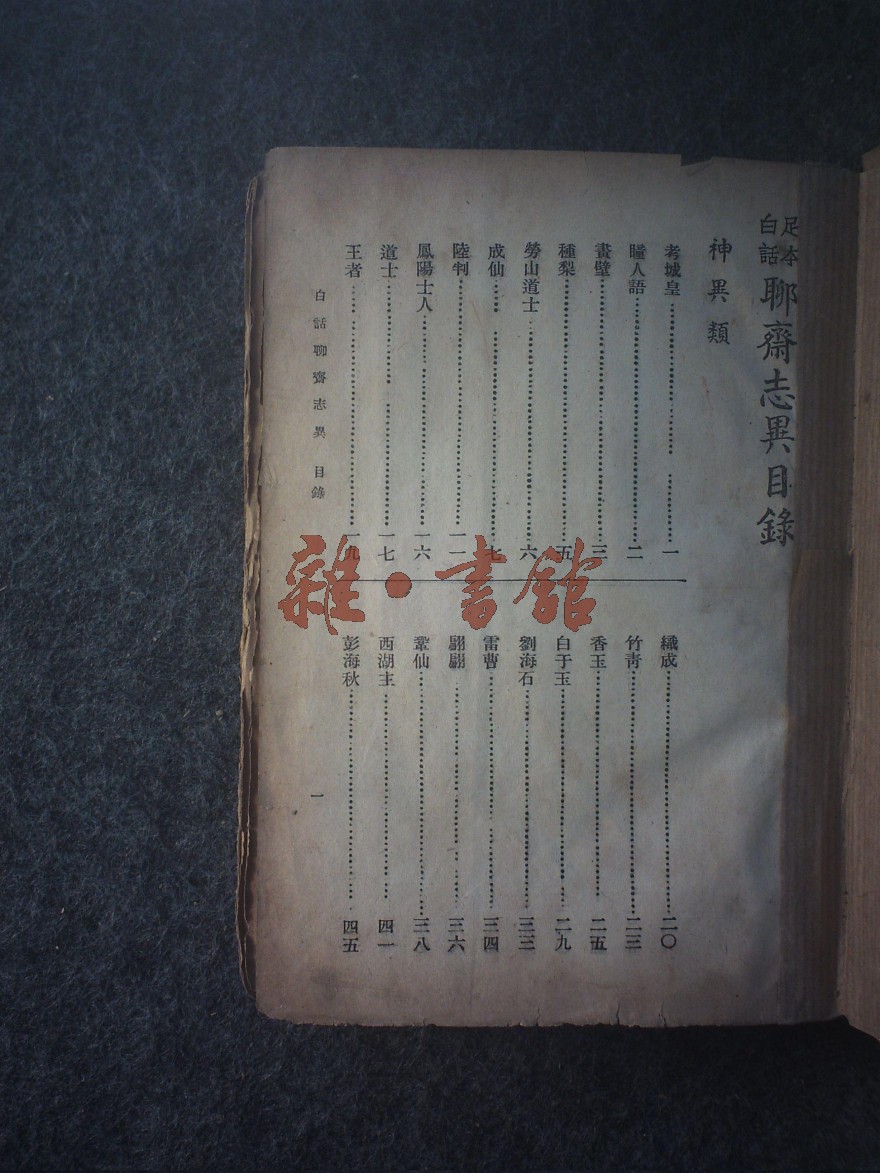 足本白話聊齋志異目錄
神異類
考城皇……一
瞳人語……二
畫壁……三
種梨……五
勞山道士……六
成仙……七
陸判……一一
鳳陽士人……一六
道士……一七
王者……一九
織成……二〇
竹青……二三
香玉……二五
白于玉……二九
劉海石……三三
雷曹……三四
翩翩……三六
鞏仙……三八
西湖主……四一
彭海秋……四五
白話聊齋志異 目錄
一
雜·書館